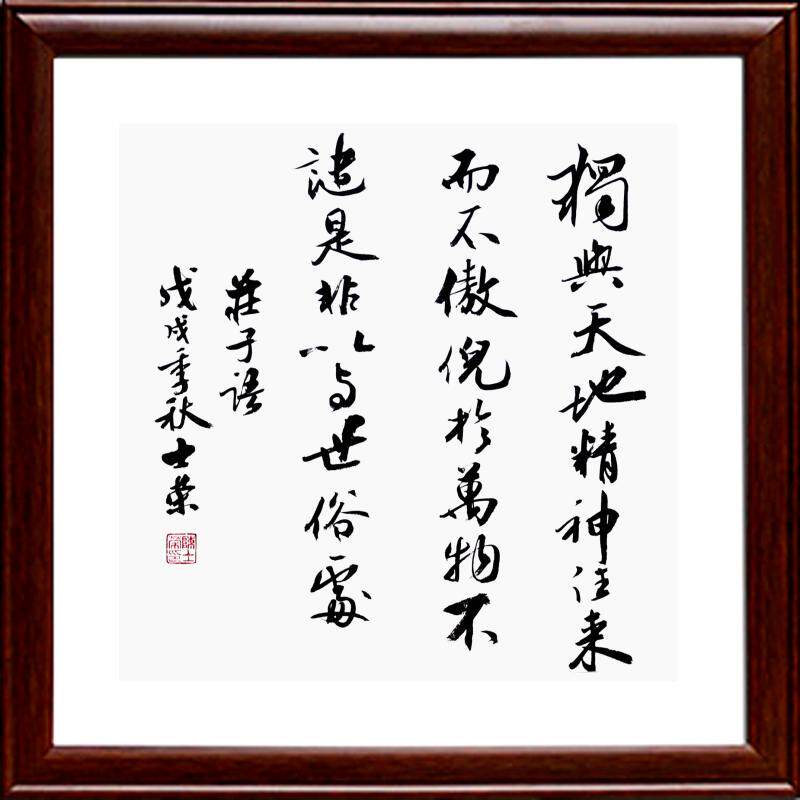 獨與天地精神往来
而不傲倪於萬物不
譴是非以與世俗處
莊子語
戊戌季秋士榮